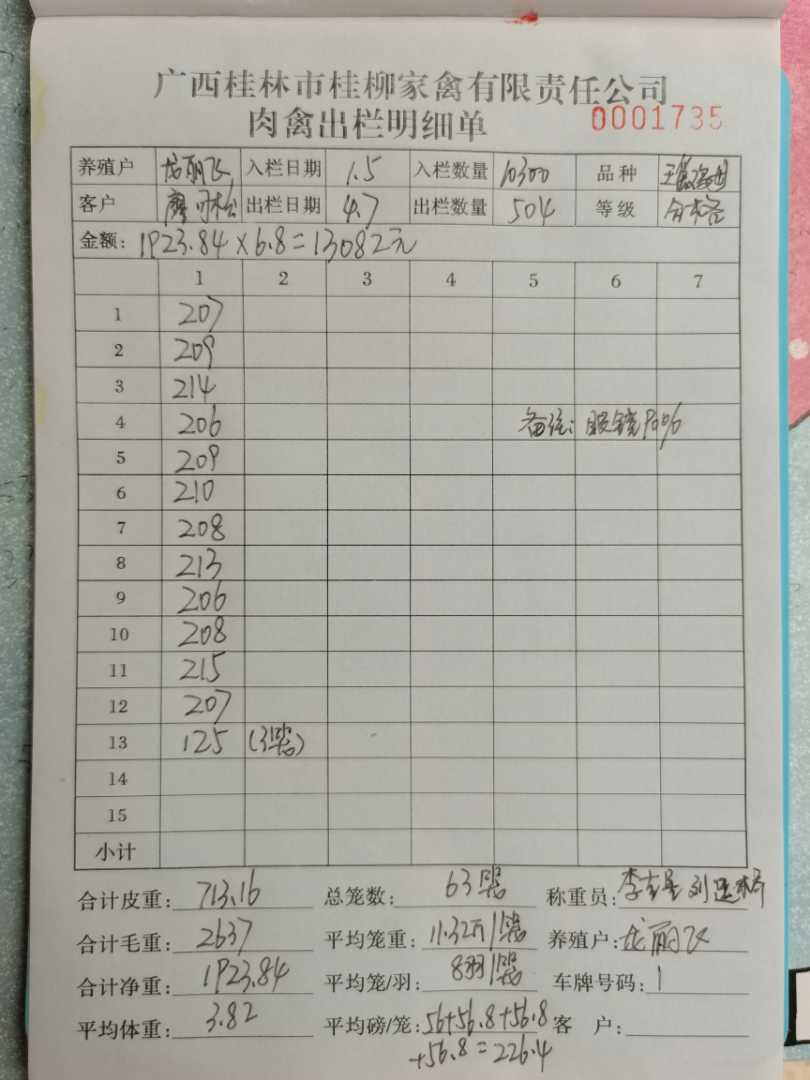 广西桂林市桂柳家禽有限责任公司
肉禽出栏明细单 0001735
养殖户 龙丽飞 入栏日期 1.5 入栏数量 10300 品种
客户 廖 松 出栏日期 4.7 出栏数量 504 等级
金额: 1923.84×6.8=13082元
1 2 3 4 5 6 7
1 207
2 209
3 214
4 206 备注: 眼镜90%
5 209
6 210
7 208
8 213
9 206
10 208
11 215
12 207
13 125 (3笼)
14
15
小计
合计皮重: 713.16 总笼数: 63笼 称重员: 李 刘
合计毛重: 2637 平均笼重: 11.32斤/笼 养殖户: 龙丽飞
合计净重: 1923.84 平均笼/羽: 8羽/笼 车牌号码: 1
平均体重: 3.82 平均磅/笼: 56+56.8+56.8 客 户:
+56.8=226.4